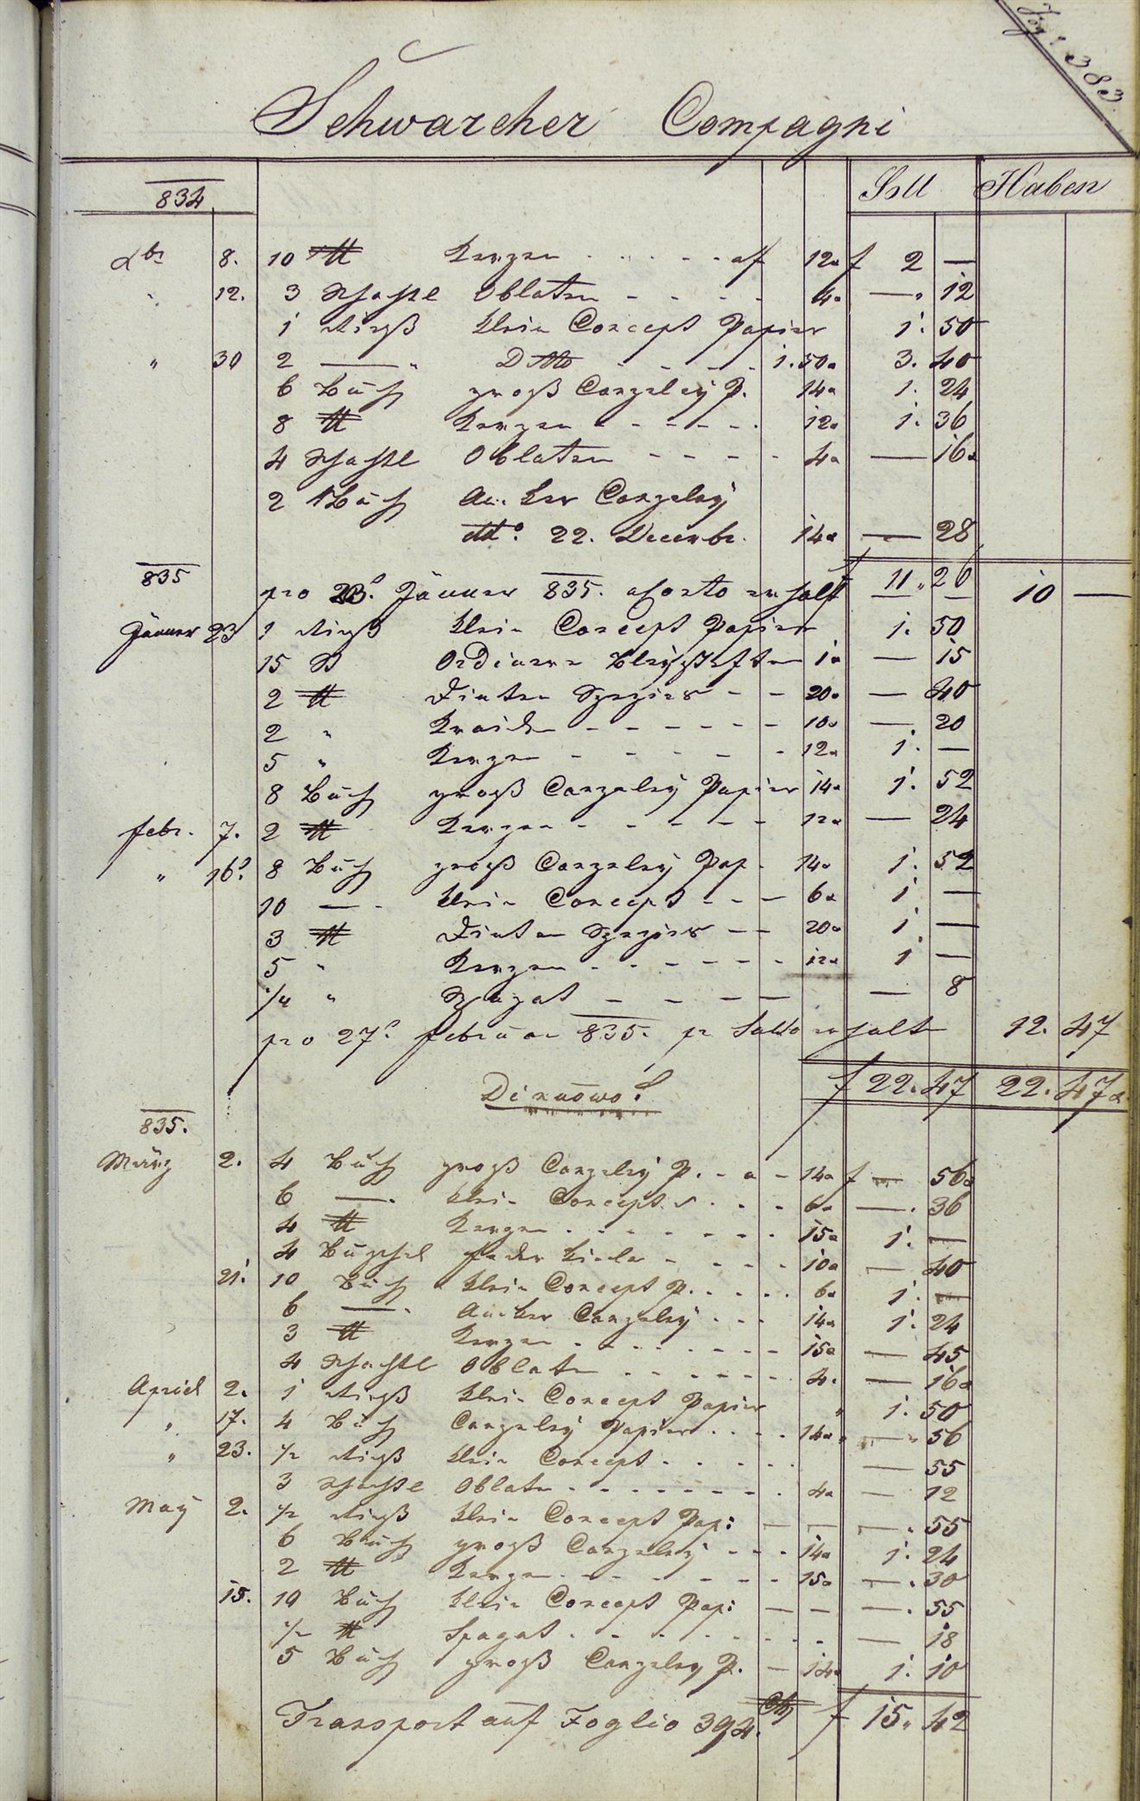 383
Schwarcher Compagni
Soll Haben
834
Xbr 8. 10 ℔ Kerzen . . . . . . af 12x f 2 —
" 12. 3 Schachtl Oblaten - - - - 4x — . 12
1 Rieß klein Concept Papier 1. 50
" 30 2 —— " Ditto - - - - 1.50x 3. 40
6 Buch groß Canzeley P. 14x 1. 24
8 ℔ Kerzen - - - - - . 12x 1. 36
4 Schachtl Oblaten - - - - 4x — 16x
2 Buch Canzeley
dto. 22. Decembr. 14x — 28
11. 26
835 pro 23. Jänner 835. erhalt 10 —
Jänner 23 1 Rieß klein Concept Papier 1. 50
15 St Ordinere Bleystiften 1x — 15
2 ℔ Dinten Spezies - - 20x — 40
2 " Kreiden - - - - - - 10x — . 20
5 " Kerzen - - - - - - 12x 1. —
8 Buch groß Canzeley Papier 14x 1. 52
Febr. 7. 2 ℔ Kerzen - - - - - 12x — 24
" 16. 8 Buch groß Canzeley Pap. 14x 1. 52
10 — . klein Concept - - - 6x 1 —
3 ℔ Dinten Spezies - - 20x 1 —
5 " Kerzen - - - - - - 12x 1 —
1/4 " Spagat - - - - — 8
pro 27. Februar 835. pr Saldo erhalt 12. 47
f 22. 47 22. 47x
835.
März 2. 4 Buch groß Canzeley P. - - - 14x f — 56x
6 — . klein Concept . . . 6x — . 36
4 ℔ Kerzen . . . . . . . 15x 1. —
4 Büschel Feder Kiele - - - - 10x — 40
21. 10 Buch klein Concept P. . . . . 6x 1. —
6 — . Canzeley . . . 14x 1. 24
3 ℔ Kerzen - - - - - - - 15x — 45
4 Schachtl Oblaten . . . . . . 4. — 16x
April 2. 1 Rieß klein Concept Papier " 1. 50
" 17. 4 Buch Canzeley Papier . . . . 14x — 56
" 23. 1/2 Rieß klein Concept . . . . . — 55
3 Schachtl Oblaten - - - - - - . 4x — 12
May 2. 1/2 Rieß klein Concept Pap: — — — . 55
6 Buch groß Canzeley - - - 14x 1. 24
2 ℔ Kerzen . - - - - - - 15x — . 30
15. 10 Buch klein Concept Pap: — — — . 55
1/2 ℔ Spagat . - . - . . . . — 18
5 Buch groß Canzeley P. — 14x 1. 10
Transport auf Foglio 394. f 15. 42